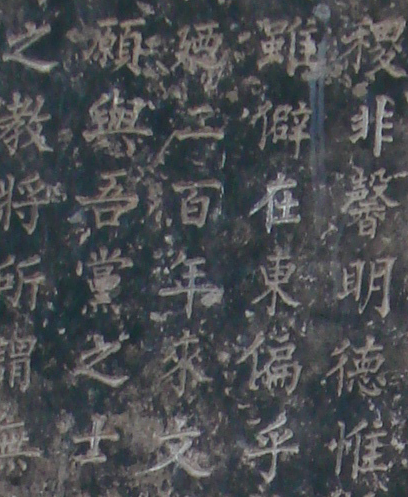 稷非馨明德惟
雖僻在東偏乎
廼二百年來文
願與吾黨之士
之教將所謂無